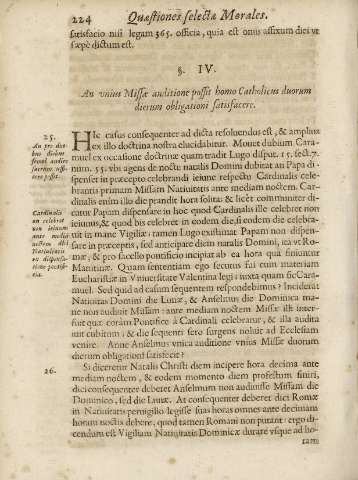 224 Quæstiones selectæ Morales.
satisfacio nisi legam 365. officia, quia est onus affixum diei vt
sæpè dictum est.
§. IV.
An vnius Missæ auditione possit homo Catholicus duorum
dierum obligationi satisfacere.
25.
An pro duo-
bus diebus
simul audire
sacrum
possit.
HIc casus consequenter ad dicta resoluendus est, & amplius
ex illo doctrina nostra elucidabitur. Mouet dubium Cara-
muel ex occasione doctrinæ quam tradit Lugo disput. 15. sect. 7.
num. 55. vbi agens de nocte natalis Domini dubitat an Papa di-
spenset in præcepto celebrandi ieiune respectu Cardinalis cele-
brantis primam Missam Natiuitatis ante mediam noctem. Car-
dinalis enim illo die prandit hora solita: & licèt communiter di-
catur Papam dispensare in hoc quod Cardinalis ille celebret non
ieiunus, & quod bis celebret in eodem die, si eodem die celebra-
uit in mane Vigiliæ: tamen Lugo existimat Papam non dispen-
sare in præceptis, sed anticipare diem natalis Domini, ita vt Ro-
mæ, & pro sacello pontificio incipiat ab ea hora qua finiuntur
Matutinæ. Quam sententiam ego secutus fui cum materiam
Eucharistiæ in Vniuersitate Valentina legi: iuxta quam sic Cara-
muel. Sed quid ad casum sequentem respondebimus? Inciderat
Natiuitas Domini die Lunæ, & Anselmus die Dominica ma-
ne non audiuit Missam: ante mediam noctem Missæ illi inter-
fuit quæ coram Pontifice à Cardinali celebratur, & illa audita
iuit cubitum, & die sequenti sero surgens noluit ad Ecclesiam
venire. Anne Anselmus vnica auditione vnius Missæ duorum
dierum obligationi satisfecit?
Cardinalis
an celebret
non ieiunus
ante mediam
noctem
Natiuitatis
ex dispensa-
tione
26.
Si diceretur Natalis Christi diem incipere hora decima ante
mediam noctem, & eodem momento diem profestum finiri,
dici consequenter deberet Anselmum non audiuisse Missam die
Dominico, sed die Lunæ. At consequenter deberet dici Romæ
in Natiuitatis peruigilio legisse suas horas omnes ante decimam
horam noctis debere, quod tamen Romani non putant: ergo di-
cendum est Vigiliam Natiuitatis Dominicæ durare vsque ad ho-
ram